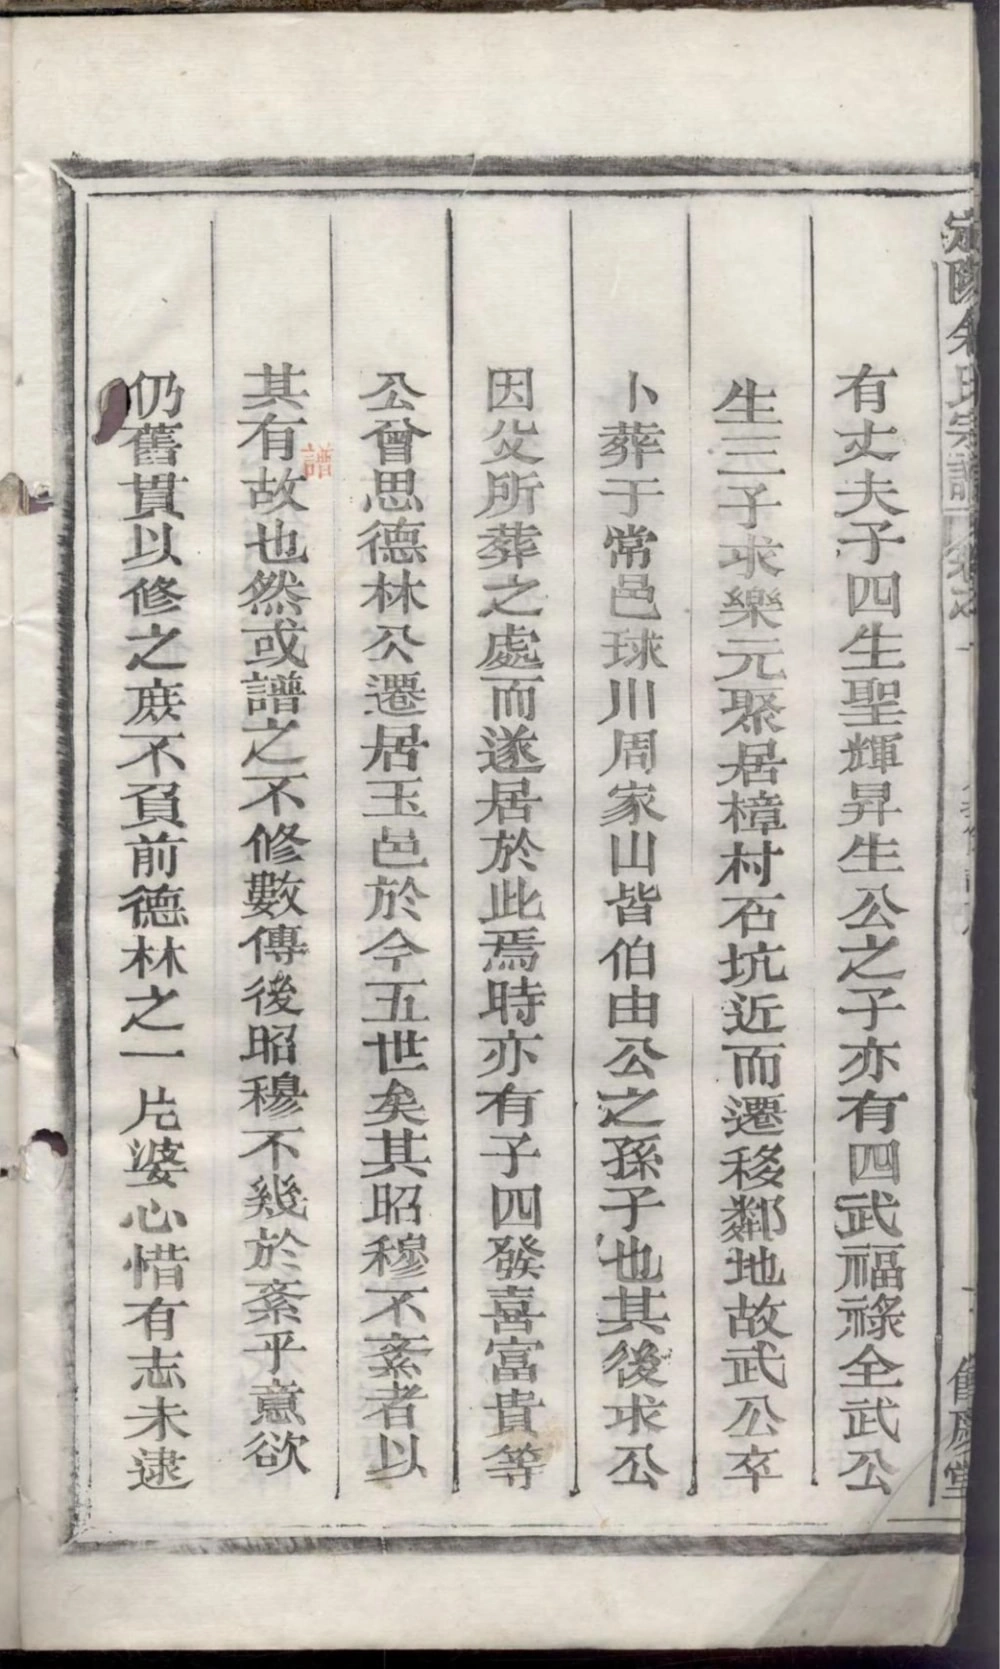 宗譜
有丈夫子四生聖輝昇生公之子亦有四武福祿全武公
生三子求樂元聚居樟村石坑近而遷移鄰地故武公卒
卜葬于常邑球川周家山皆伯由公之孫子也其後求公
因父所葬之處而遂居於此焉時亦有子四發喜富貴等
公曾思德林公遷居玉邑於今五世矣其昭穆不紊者以
譜
其有故也然或譜之不修數傳後昭穆不幾於紊乎意欲
仍舊貫以修之庶不負前德林之一片婆心惜有志未逮